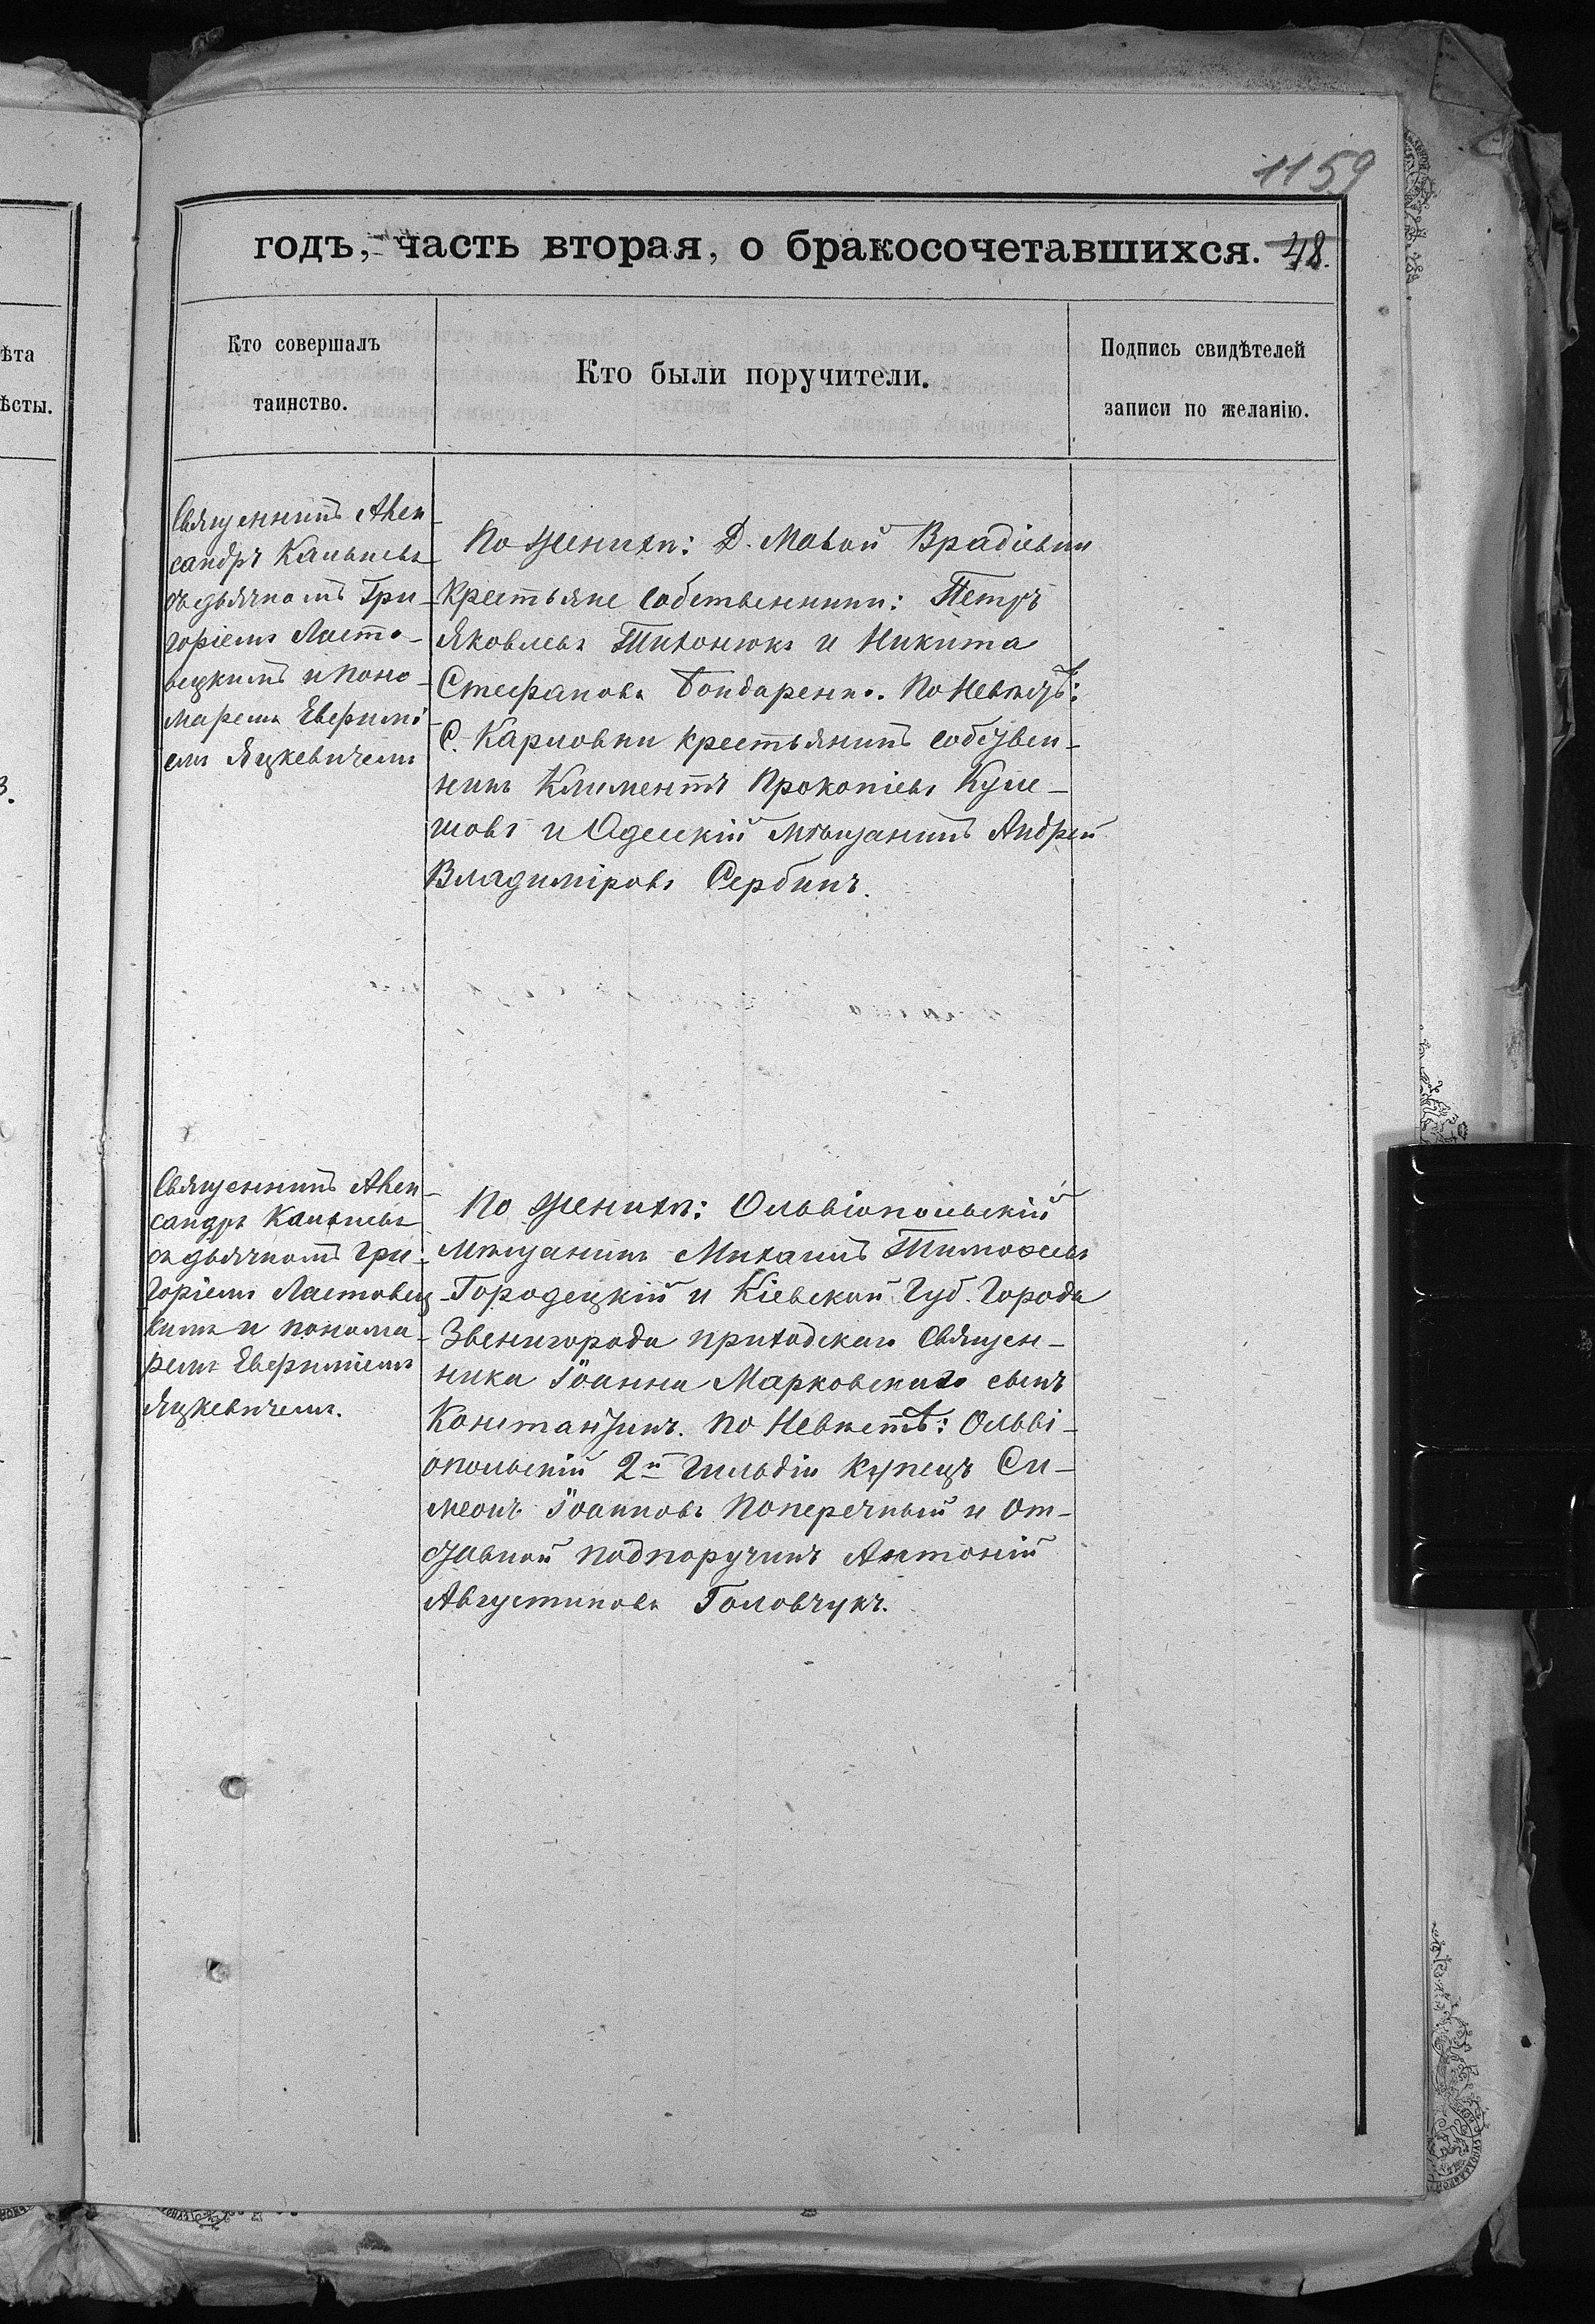 1159
годъ, часть вторая, о бракосочетавшихся. 48.
ѣта
ѣсты.
Кто совершалъ
таинство.
Кто были поручители.
Подпись свидѣтелей
записи по желанію.
Священникъ Алек-
сандръ Каль
съ дьячкомъ Гри-
горіемъ Ласто-
вецкимъ и поно-
маремъ Евфимі-
емъ Яцкевичемъ
По женихѣ: Д. Малой Врадіевки
крестьяне собственники: Петръ
Яковлевъ Тихонюкъ и Никита
Стефановъ Бондаренко. По Невѣстѣ:
С. Карловки крестьянинъ собствен-
никъ Климентъ Прокопіевъ Куле-
шовъ и Одесскій мѣщанинъ Андрей
Владиміровъ Сербинъ.
Священникъ Алек-
сандръ Каль
съ дьячкомъ Гри-
горіемъ Ластовец-
кимъ и понома-
ремъ Евфиміемъ
Яцкевичемъ.
По женихѣ: Ольвіопольскій
мѣщанинъ Михаилъ Тимофеевъ
Городецкій и Кіевской Губ. Города
Звенигорода приходскаго Священ-
ника Іоанна Марковскаго сынъ
Константинъ. По Невѣстѣ: Ольві-
опольскій 2й Гильдіи Купецъ Си-
меонъ Іоанновъ Поперечный и От-
ставной подпоручикъ Антоній
Августиновъ Головчукъ.